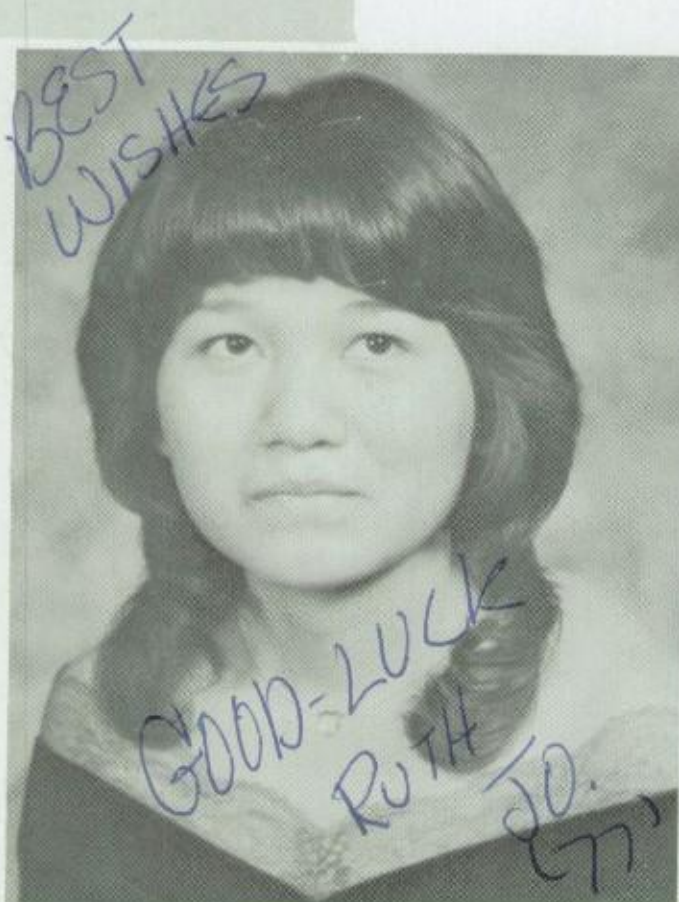 BEST
WISHES
GOOD-LUCK
RUTH JO.
'77'